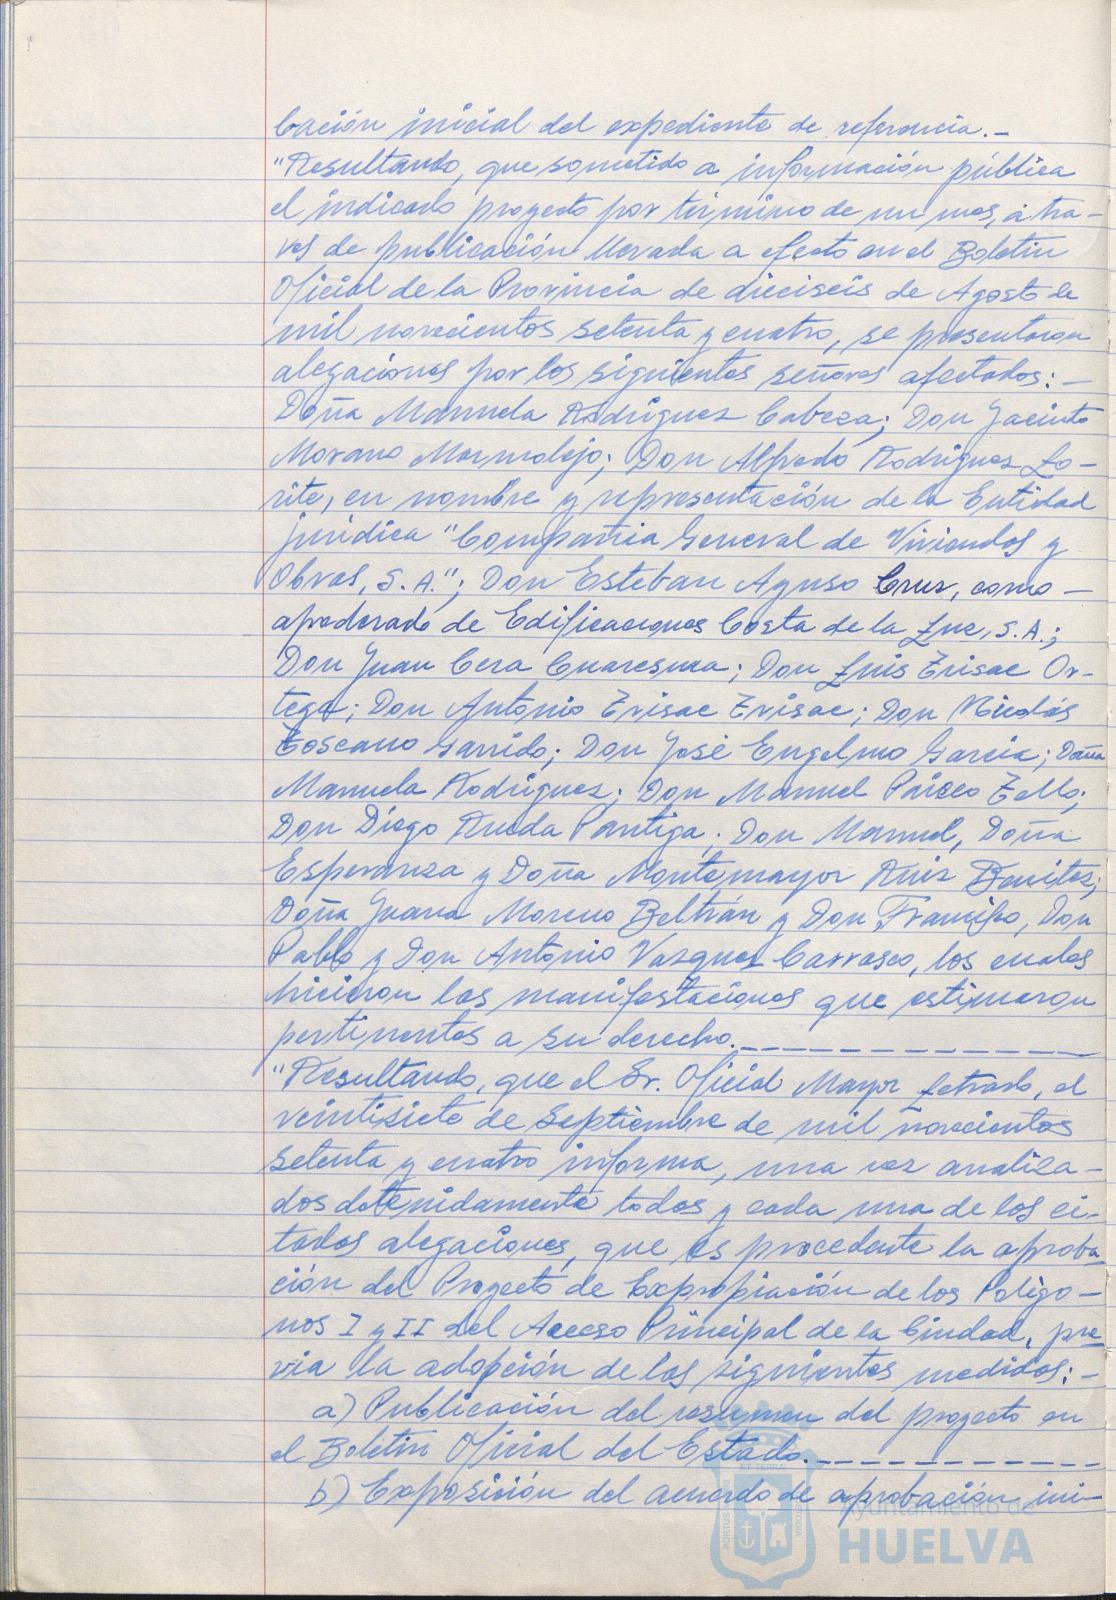 bación inicial del expediente de referencia.-
"Resultando, que sometido a información pública
el indicado proyecto por término de un mes, a tra-
ves de publicación llevada a efecto en el Boletin
Oficial de la Provincia de dieciseis de Agosto de
mil novecientos setenta y cuatro, se presentaron
alegaciones por los siguientes señores afectados:-
Doña Manuela Rodriguez Cabeza; Don Jacinto
Morano Marmolejo; Don Alfredo Rodriguez Lo-
rite, en nombre y representación de la Entidad
jurídica "Compañia General de Viviendas y
Obras, S.A."; Don Esteban Ayuso Cruz, como -
apoderado de Edificaciones Costa de la Luz, S.A.;
Don Juan Cera Cuaresma; Don Luis Trisac Or-
tega; Don Antonio Trisac Trisac; Don Nicolás
Toscano Garrido; Don José Engelmo Garcia; Doña
Manuela Rodriguez; Don Manuel Tello;
Don Diego Rueda Pantiga; Don Manuel, Doña
Esperanza y Doña Montemayor Ruiz Benitez;
Doña Juana Moreno Beltrán y Don Francisco, Don
Pablo y Don Antonio Vazquez Carrasco, los cuales
hicieron las manifestaciones que estimaron
pertinentes a su derecho.- - - - - - - - - - - -
"Resultando, que el Sr. Oficial Mayor Letrado, el
veintisiete de Septiembre de mil novecientos
setenta y cuatro informa, una vez analiza-
dos detenidamente todas y cada una de las ci-
tadas alegaciones, que es procedente la aproba-
ción del Proyecto de Expropiación de los Poligo-
nos I y II del Acceso Principal de la Ciudad, pre-
via la adopción de las siguientes medidas:-
a) Publicación del resumen del proyecto en
el Boletin Oficial del Estado.- - - - - - - - - - -
b) Exposición del acuerdo de aprobación ini-
Ayuntamiento de
HUELVA